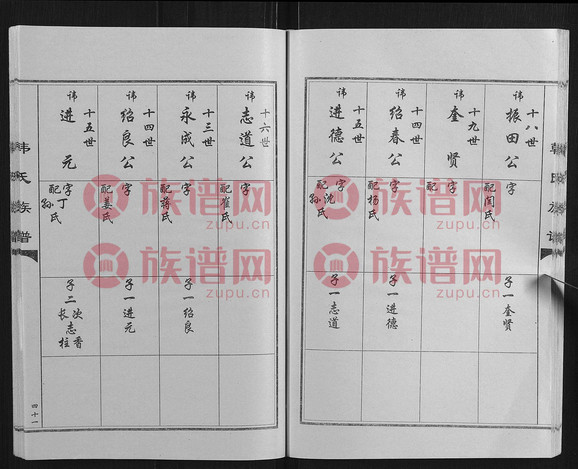 韩氏族谱
十八世
讳 振田公
字
配闫氏
子一奎贤
十九世
讳 奎贤
配
十四世
讳 绍春公
字
配杨氏
子一进德
十五世
讳 进德公
字
配沈氏
孙氏
子一志道
十六世
讳 志道公
字
配崔氏
十三世
讳 永成公
字
配蒋氏
子一绍良
十四世
讳 绍良公
字
配姜氏
子一进元
十五世
讳 进元
字
配丁氏
孙氏
子二
长志柱
次志香
韩氏族谱
四十一
族谱网
zupu.cn
族谱网
zupu.cn
族谱网
zupu.cn
族谱网
zupu.cn